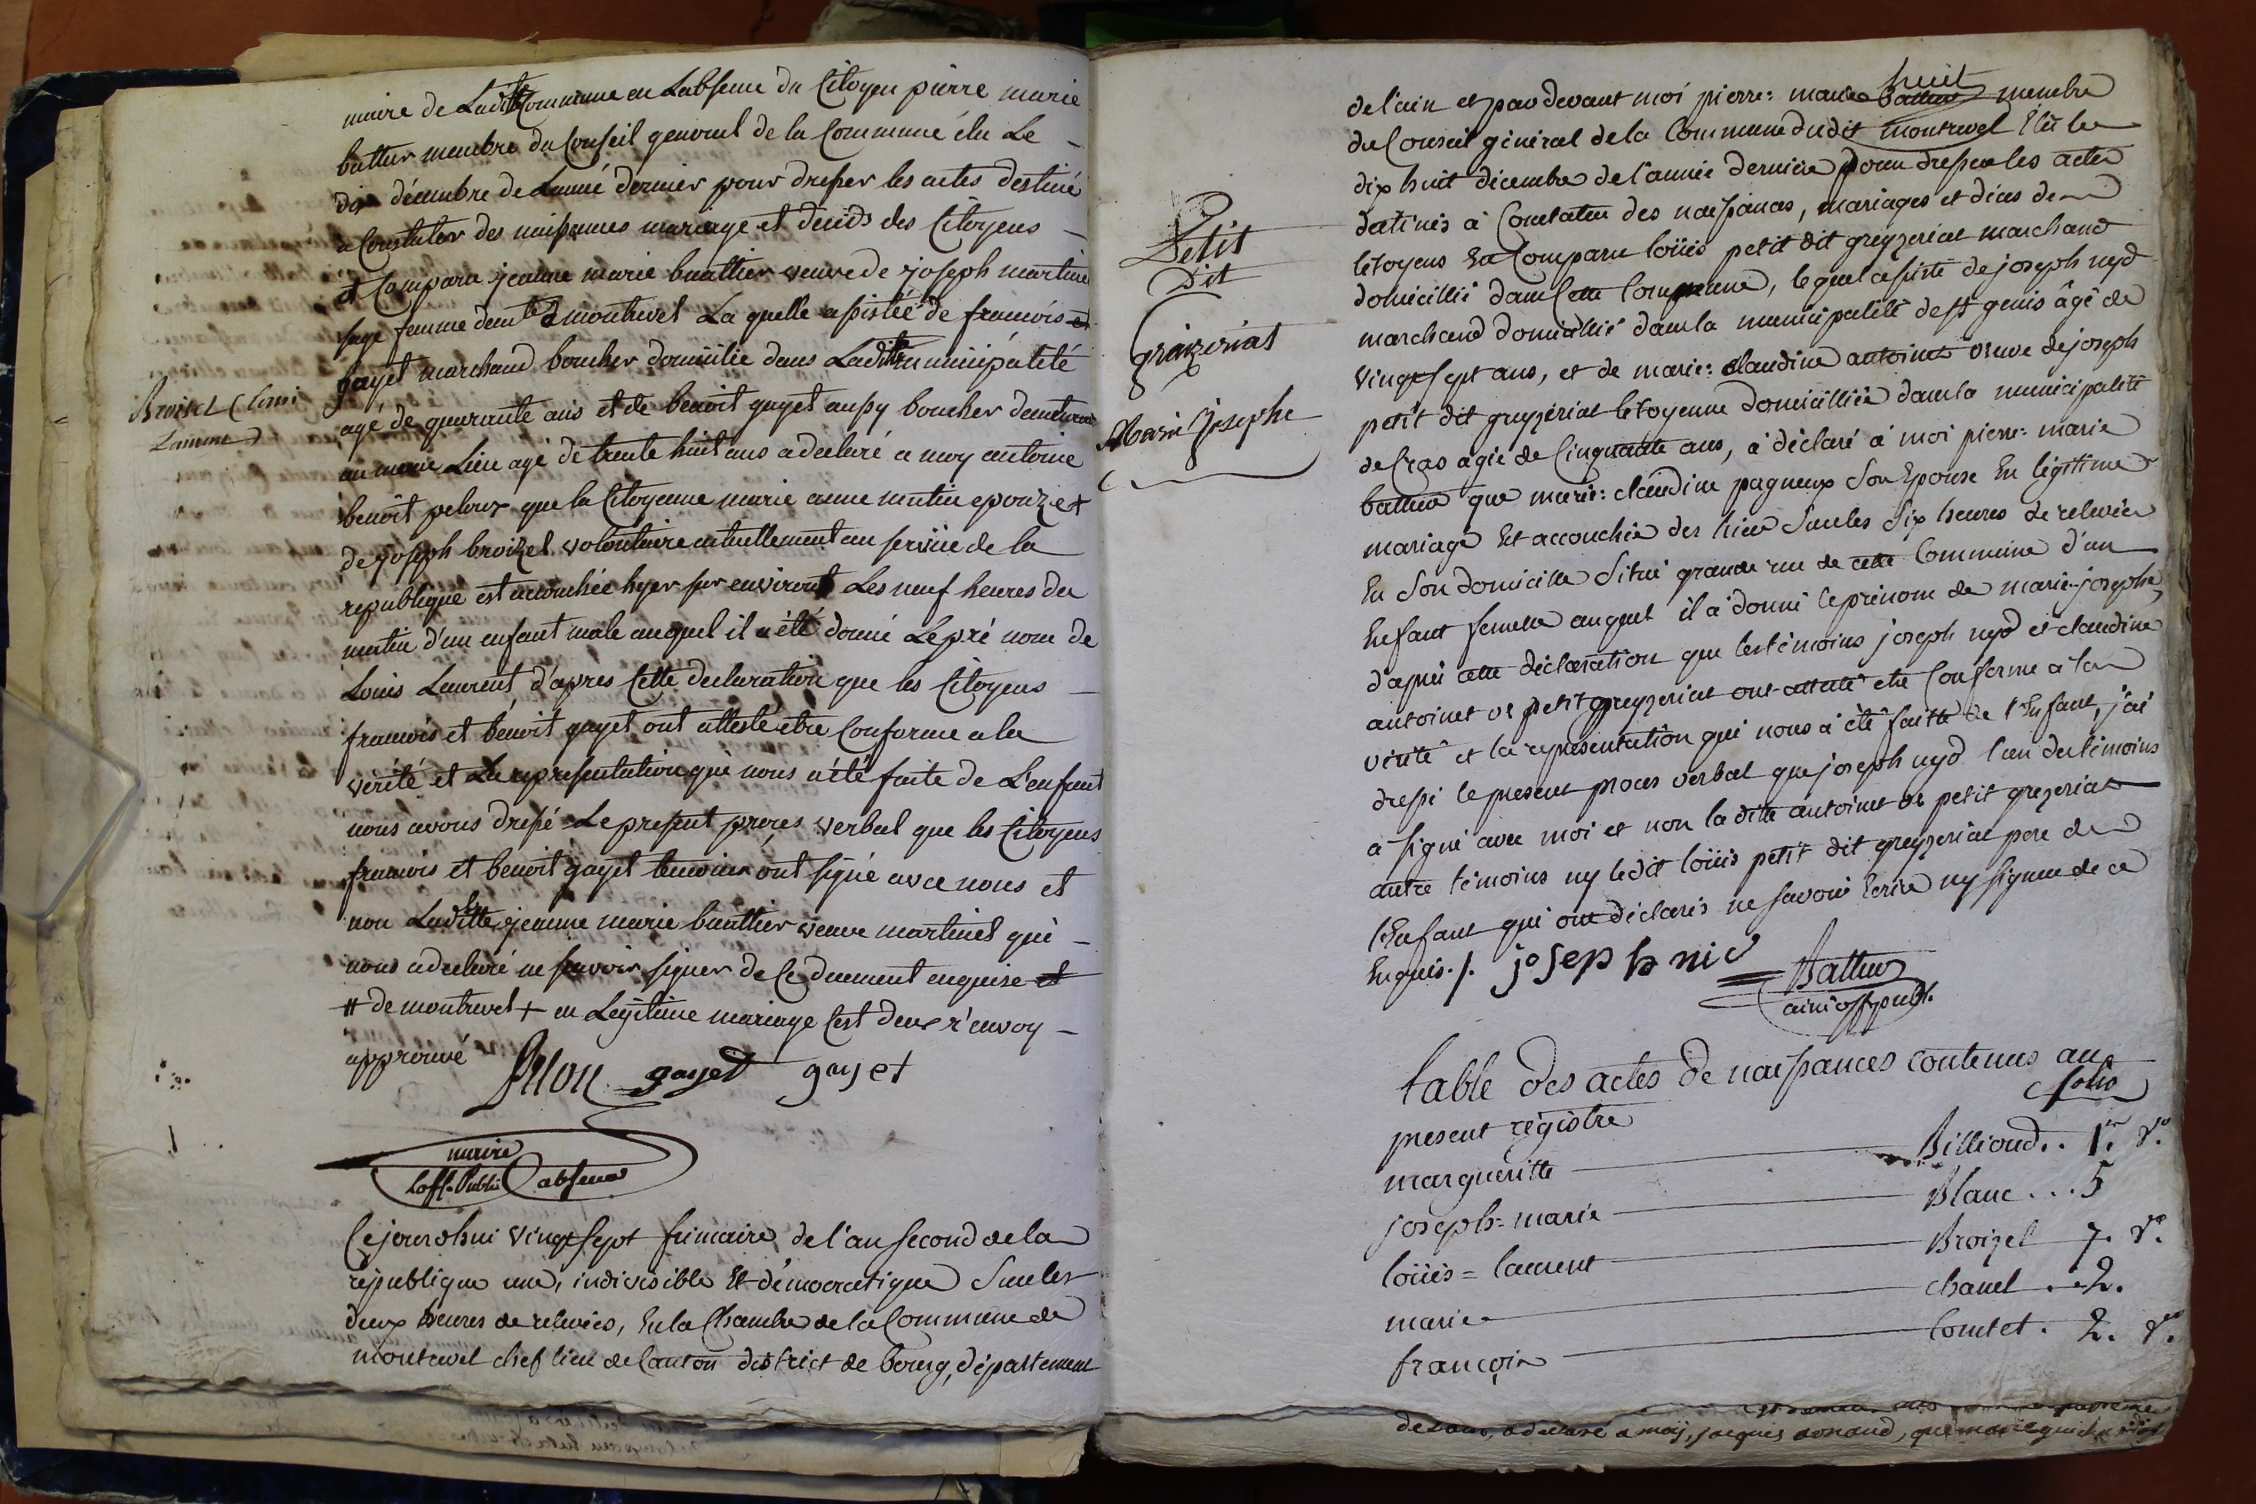 maire de Ladte Commune en Labsence du Citoyen pierre marie
battur membre du Conseil general de la Commune élu Le
dix décembre de Lanné dernier pour dresser les actes destiné
a Constater des naissances mariage et decéds des Citoyens
et Comparu jeanne marie bauttier veuve de joseph martinet
sage femme demte a montrevel La quelle assistée de francois
gayet marchand boucher domicilie dans Ladte municipalité
agé de quarante ans et de benoit gayet aussy boucher demeurant
au meme Lieu agé de trente huit ans a declaré a moy antoine
benoit pelour que la Citoyenne marie anne eponze +
de joseph broizel volontaire actuellement au service de la
republique est accouchée hyer sur environt Les neuf heures du
matin d'un enfant male auquel il a été donné Le pré nom de
Louis Laurent d'apres Cette declaration que les Citoyens
francois et benoit gayet ont attesté etre Conforme a la
verité et La representation que nous a été faite de L'enfant
nous avons dressé Le present procés verbal que les Citoyens
francois et benoit gayet temoins ont signé avec nous et
non Ladte jeanne marie bauttier veuve martinet qui
nous a declaré ne scavoir signer de Ce duement enquise et
# de montrevel + en Legitime mariage Cest deux r'envoy
approuvé
gayet gayet
maire
Loff. Public absence
Broisel (Louis
Laurent)
Cejourdhui vingt sept frimaire de l'an second de la
république une, indivisible Et démocratique Sur les
deux heures de relevées, En la Chambre de la Commune de
montrevel chef lieu de Canton district de bourg, département
Petit
Dit
Greizeriat
Marie Josephe
huit
de l'ain et par devant moi pierre= marie battur membre
du Conseil général de la Commune dudit montrevel Elû le
dix huit décembre de l'année dernière pour dresser les actes
destinés à Constater des naissances, mariages et décès des
Citoyens Est Comparu loüis petit dit greyzeriat marchand
domicillié dans Cette Commune, lequel assisté de joseph nyd
marchand domicillié dans la municipalité de st genis âgé de
vingt sept ans, et de marie= claudine antoinet veuve de joseph
petit dit greyzériat Citoyenne domicilliée dans la municipalité
de Cras agée de Cinquante ans, a déclaré à moi pierre= marie
battur que marie= claudine pagneux Son Epouse En légitime
mariage Est accouchée des hier Sur les Six heures de relevée
En Son domicille Situé grande rue de cette Commune d'un
Enfant femelle auquel il a donné le prénom de marie-josephe,
d'après cette déclaration que les témoins joseph nyd et claudine
antoinet ve petit greyzeriat ont attesté etre Conforme a la
vérité et la représentation qui nous a été faitte de l'Enfant, j'ai
dressé le present proces verbal que joseph nyd l'un des témoins
a signé avec moi et non la ditte antoinet ve petit greyzeriat
autre témoins ny ledit loüis petit dit greyzeriat pere de
l'Enfant qui ont déclarés ne savoir Ecrire ny signer de ce
Enquis./. joseph nid Battur
ainé off. publ.
table des actes de naissances contenus au
present régistre folio
margueritte Billioud.. 1er. vo.
joseph= marie Blanc... 5
loüis= laurent Broizel 7. vo.
marie chanel.. 2.
françois Comtet. 2. vo.
a declaré a moÿ, jacques